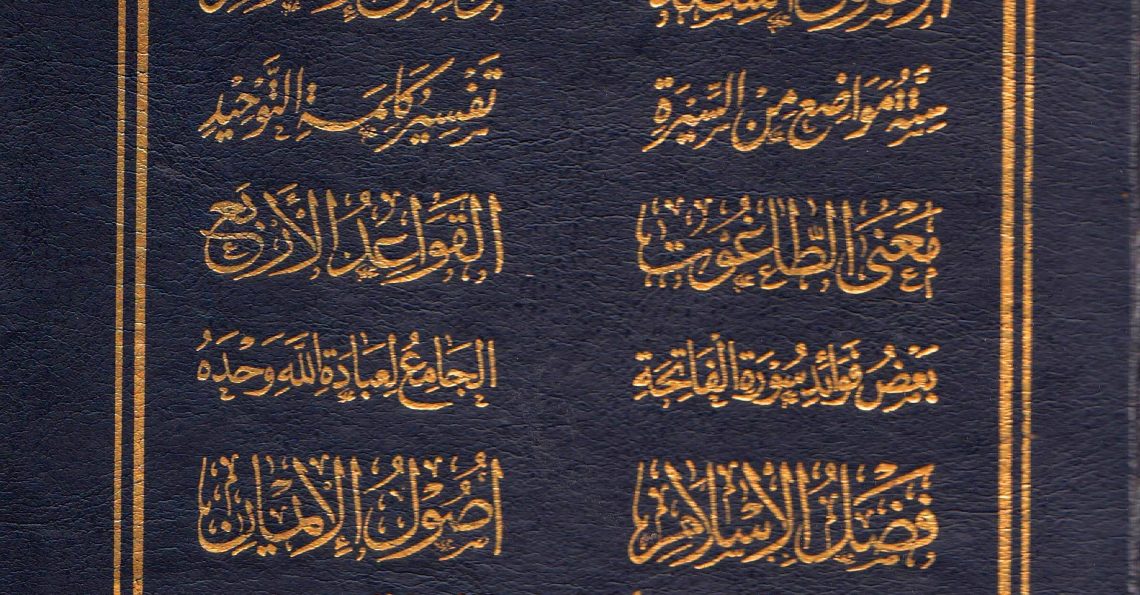 ستة مواضع من السيرة تفسير كلمة التوحيد
معنى الطاغوت القواعد الأربع
بعض فوائد سورة الفاتحة الجامع لعبادة الله وحده
فضل الإسلام أصول الإيمان